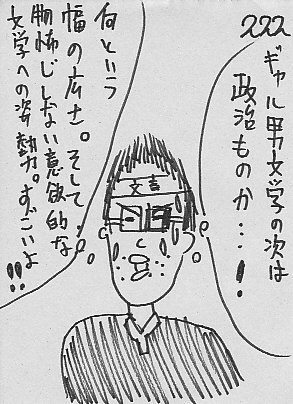 222
ギャル男文学の次は
政治ものか…!
何という
幅の広さ。そして
物怖じしない意欲的な
文学への姿勢。すごいよ
!!
文吉